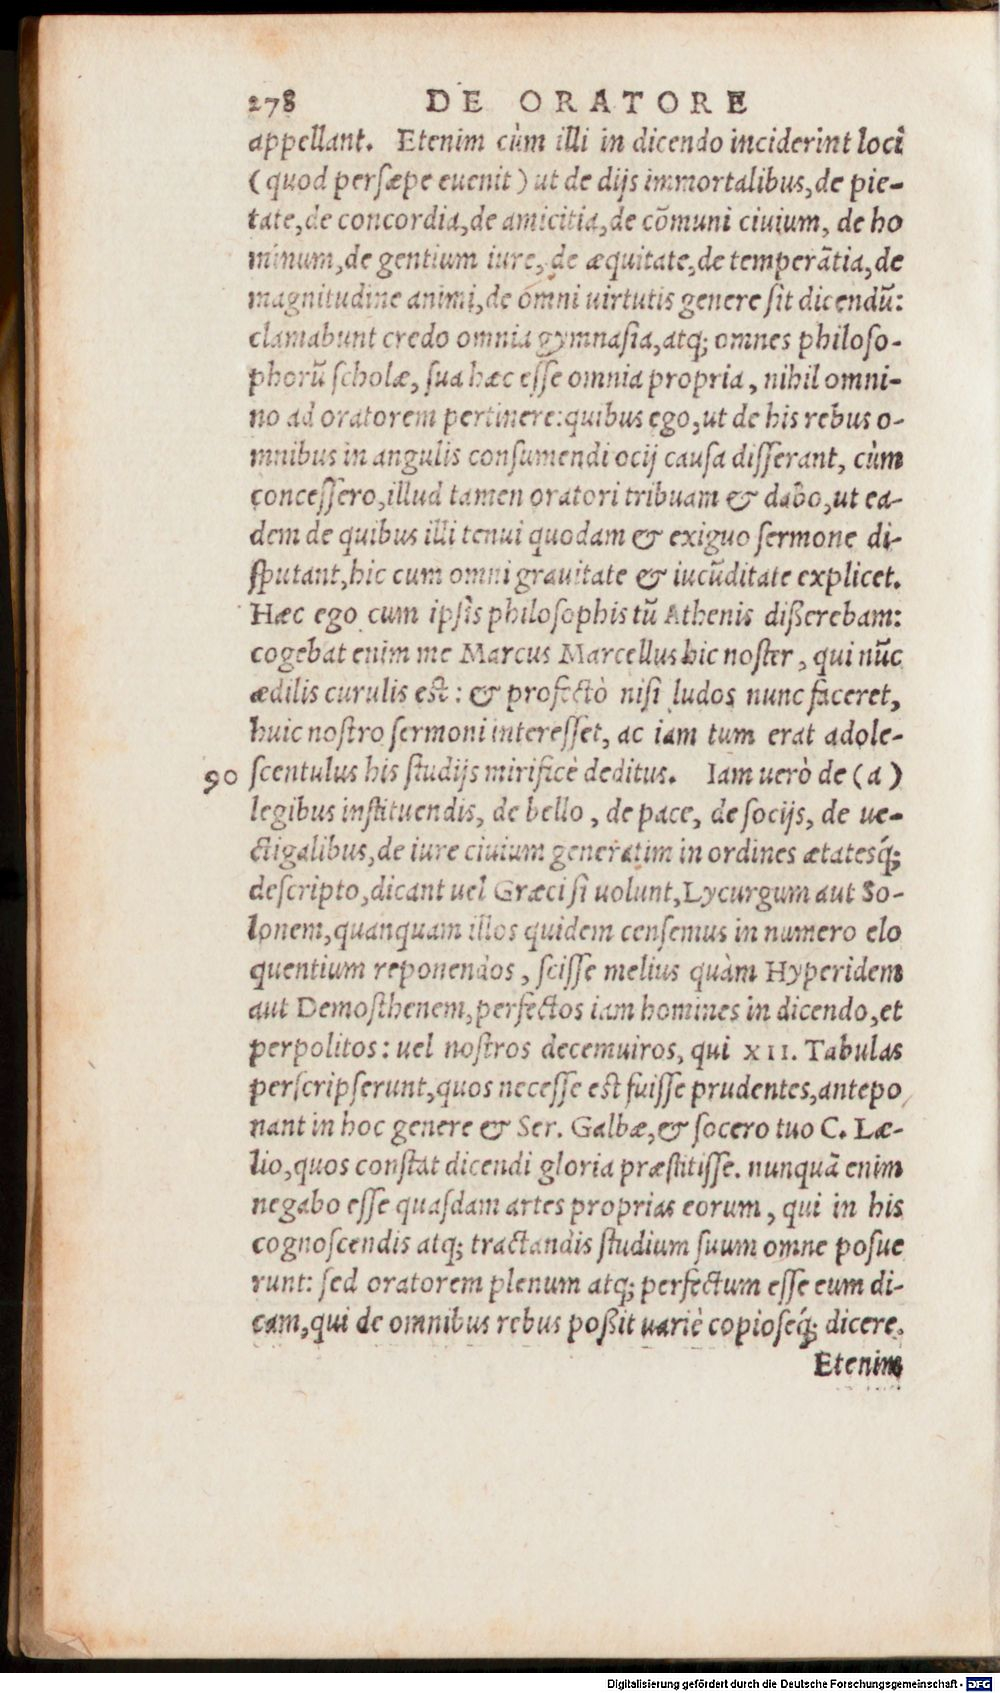 278 DE ORATORE
appellant. Etenim cùm illi in dicendo inciderint loci
(quod persæpe euenit) ut de dijs immortalibus, de pie-
tate, de concordia, de amicitia, de cõmuni ciuium, de ho
minum, de gentium iure, de æquitate, de temperãtia, de
magnitudine animi, de omni uirtutis genere sit dicendũ:
clamabunt credo omnia gymnasia, atq; omnes philoso-
phorũ scholæ, sua hæc esse omnia propria, nihil omni-
no ad oratorem pertinere: quibus ego, ut de his rebus o-
mnibus in angulis consumendi ocij causa disserant, cùm
concessero, illud tamen oratori tribuam & dabo, ut ea-
dem de quibus illi tenui quodam & exiguo sermone di-
sputant, hic cum omni grauitate & iucũditate explicet.
Hæc ego cum ipsis philosophis tũ Athenis dißerebam:
cogebat enim me Marcus Marcellus hic noster, qui nũc
ædilis curulis est: & profectò nisi ludos nunc faceret,
huic nostro sermoni interesset, ac iam tum erat adole-
90 scentulus his studijs mirificè deditus. Iam uerò de (a)
legibus instituendis, de bello, de pace, de socijs, de ue-
ctigalibus, de iure ciuium generatim in ordines ætatesq́;
descripto, dicant uel Græci si uolunt, Lycurgum aut So-
lonem, quanquam illos quidem censemus in numero elo
quentium reponendos, scisse melius quàm Hyperidem
aut Demosthenem, perfectos iam homines in dicendo, et
perpolitos: uel nostros decemuiros, qui XII. Tabulas
perscripserunt, quos necesse est fuisse prudentes, antepo
nant in hoc genere & Ser. Galbæ, & socero tuo C. Læ-
lio, quos constat dicendi gloria præstitisse. nunquã enim
negabo esse quasdam artes proprias eorum, qui in his
cognoscendis atq; tractandis studium suum omne posue
runt: sed oratorem plenum atq; perfectum esse eum di-
cam, qui de omnibus rebus poßit uariè copioseq́; dicere.
Etenim
Digitalisierung gefördert durch die Deutsche Forschungsgemeinschaft - DFG